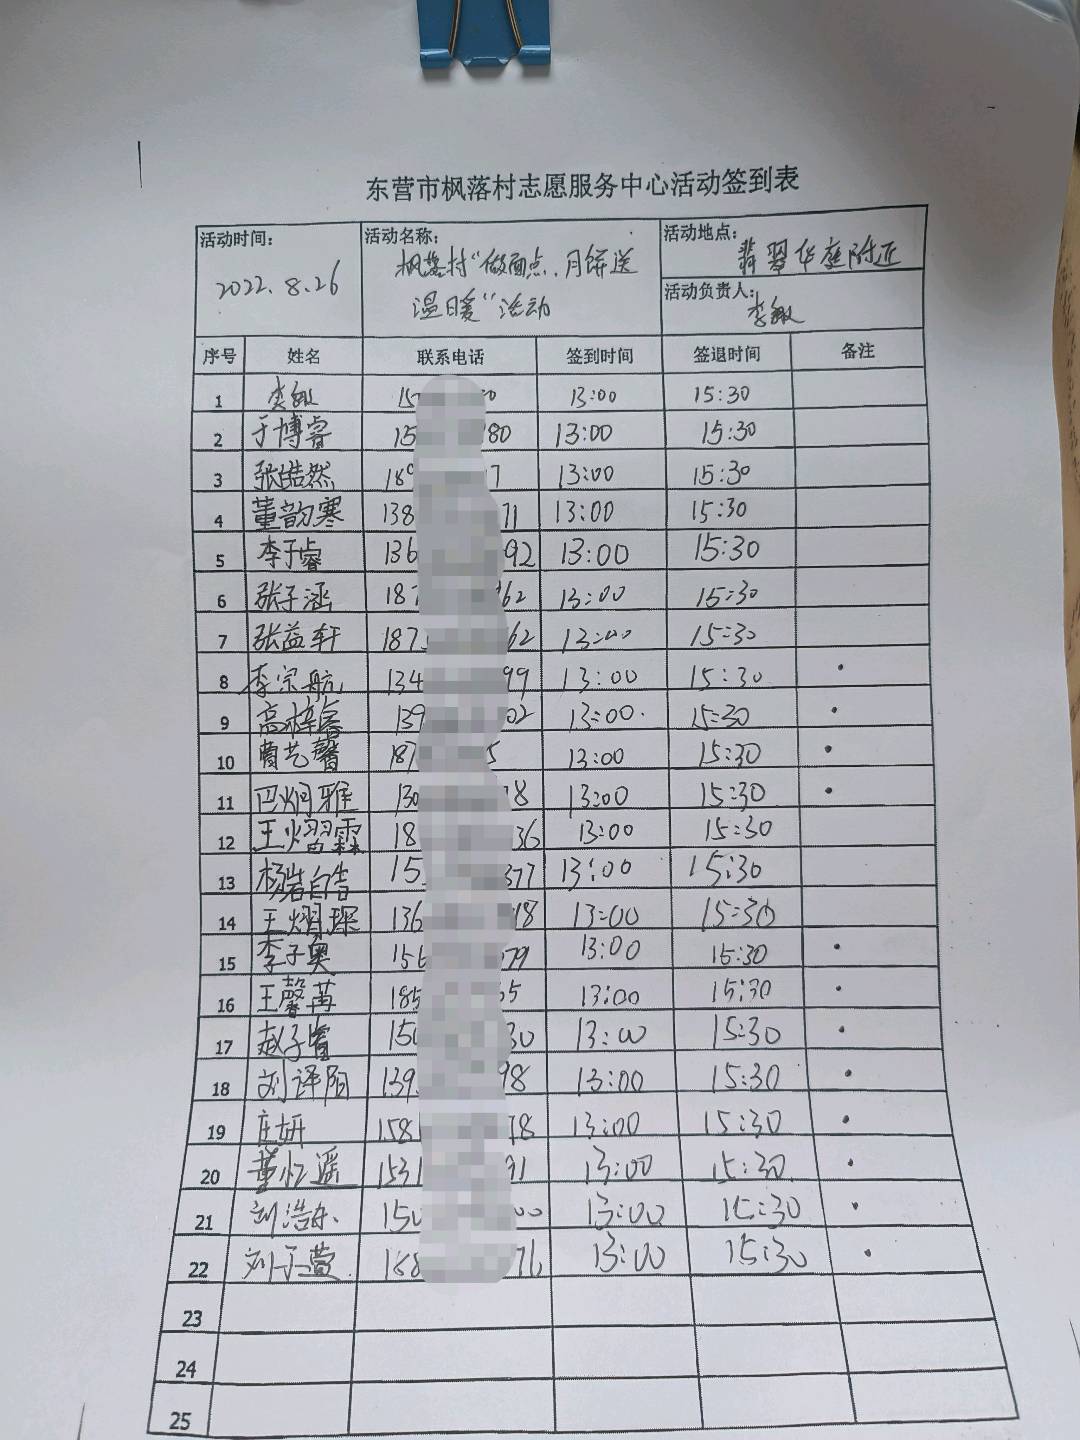 东营市枫落村志愿服务中心活动签到表
活动时间: 2022.8.26
活动名称: 枫落村“做面点、月饼送
温暖”活动
活动地点: 翡翠华庭附近
活动负责人: 李敏
序号 姓名 联系电话 签到时间 签退时间 备注
1 李敏 15 0 13:00 15:30
2 于博睿 15 80 13:00 15:30
3 张皓然 189 7 13:00 15:30
4 董韵寒 138 71 13:00 15:30
5 李子睿 136 92 13:00 15:30
6 张子涵 187 62 13:00 15:30
7 张益轩 187 62 13:00 15:30
8 李宗航 134 99 13:00 15:30 ·
9 高梓睿 139 02 13:00 15:30 ·
10 曹艺馨 187 5 13:00 15:30 ·
11 巴炯雅 130 8 13:00 15:30 ·
12 王熠霖 18 36 13:00 15:30
13 杨岩 15 377 13:00 15:30
14 王熠琛 136 18 13:00 15:30
15 李子奥 156 79 13:00 15:30 ·
16 王馨苒 185 65 13:00 15:30 ·
17 赵子睿 150 30 13:00 15:30 ·
18 刘译阳 139 98 13:00 15:30 ·
19 庄妍 158 78 13:00 15:30 ·
20 董忆遥 1531 91 13:00 15:30 ·
21 刘浩东 150 00 13:00 15:30 ·
22 刘子萱 188 76 13:00 15:30 ·
23
24
25